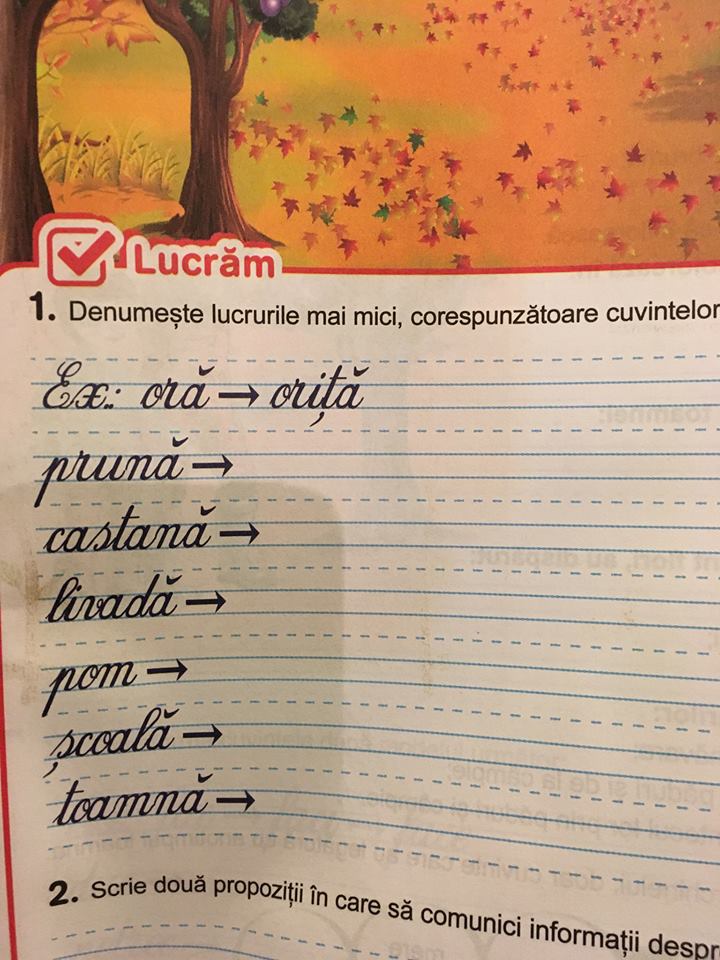 Lucrăm
1. Denumește lucrurile mai mici, corespunzătoare cuvintelor
Ex.: oră → oriță
prună →
castană →
livadă →
pom →
școală →
toamnă →
2. Scrie două propoziții în care să comunici informații despr